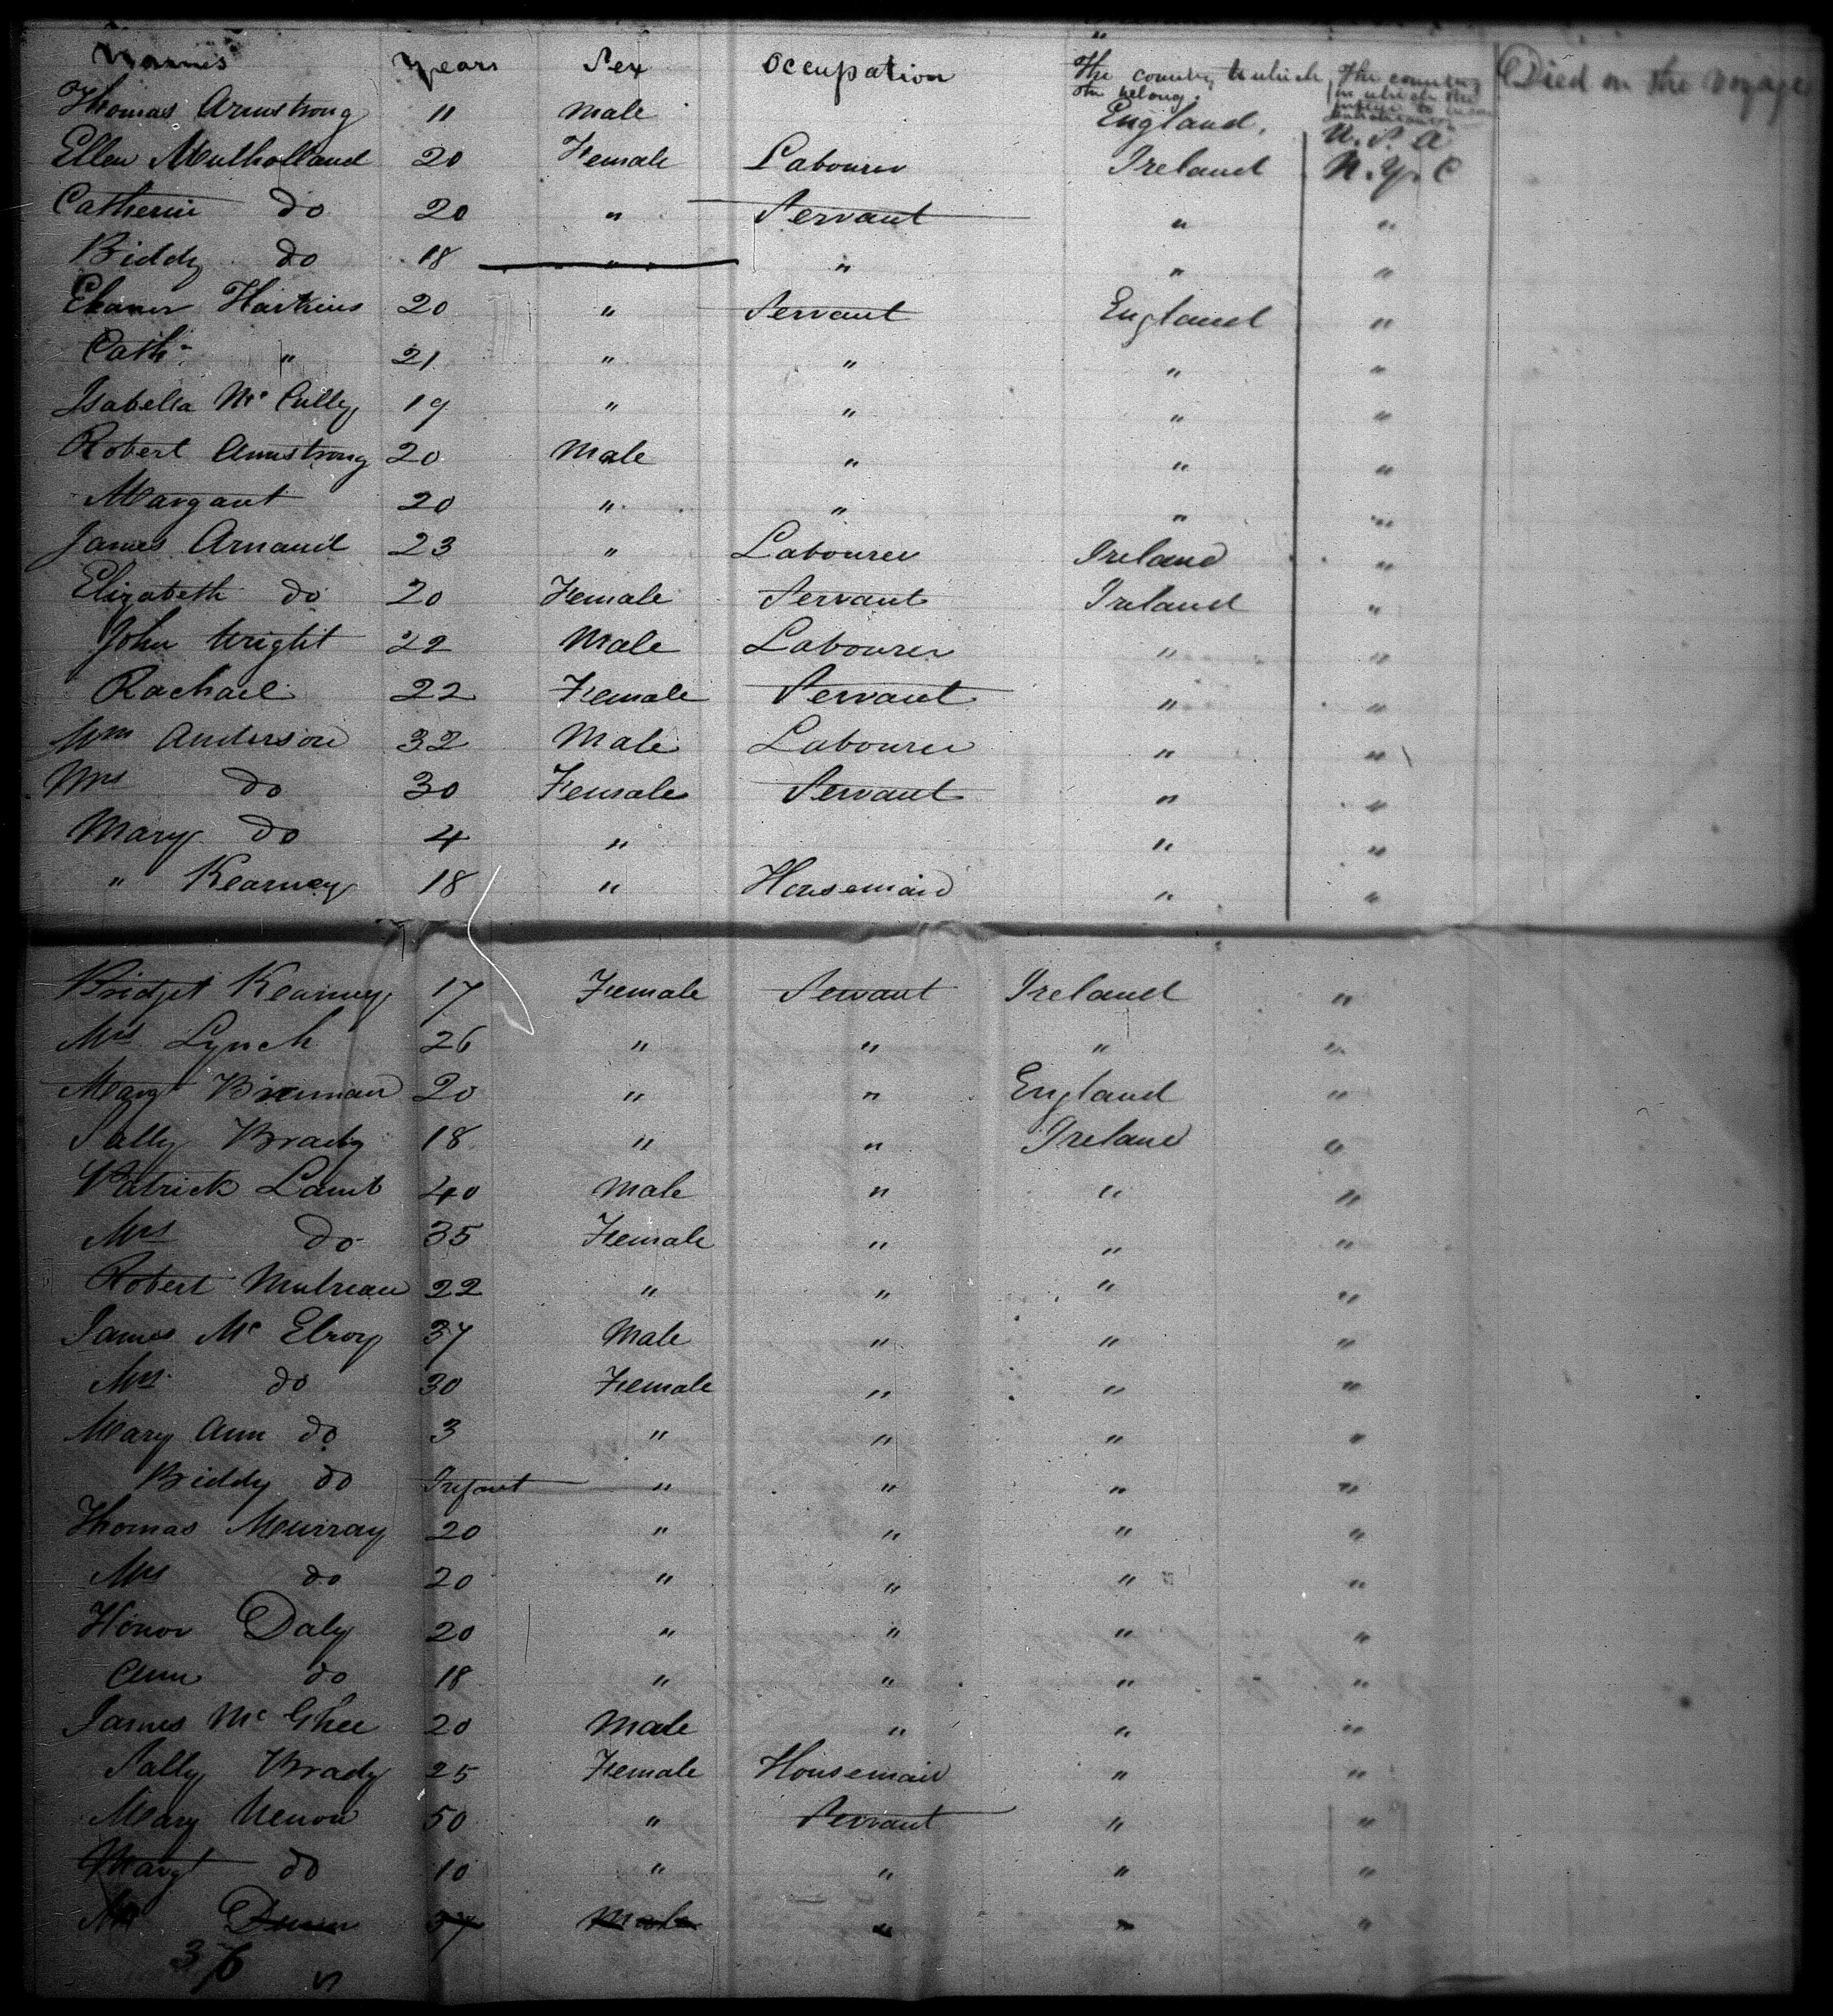 Names Years Sex Occupation The country to which they belong. The country in which they intend to become inhabitants Died on the Voyage
Thomas Armstrong 11 Male England, U.S.A
Ellen Mulholland 20 Female Labourer Ireland N.Y.C
Catherin do 20 " Servant " "
Biddy do 18 " " " "
Elianor Harkins 20 " Servant England "
Cath " 21 " " " "
Isabella Mc Cully 19 " " " "
Robert Armstrong 20 Male " " "
Margaret 20 " " " "
James Arnauld 23 " Labourer Ireland "
Elizabeth do 20 Female Servant Ireland "
John Wright 22 Male Labourer " "
Rachael 22 Female Servant " "
Wm Anderson 32 Male Labourer " "
Mrs do 30 Female Servant " "
Mary do 4 " " "
" Kearney 18 " Housemaid " "
Bridget Kearney 17 Female Servant Ireland "
Mrs Lynch 26 " " " "
Margt Brennan 20 " " England "
Sally Brady 18 " " Ireland "
Patrick Lamb 40 Male " " "
Mrs Do 35 Female " " "
Robert 22 " " " "
James Mc Elroy 37 Male " " "
Mrs do 30 Female " " "
Mary Ann do 3 " " " "
Biddy do Infant " " " "
Thomas Murray 20 " " " "
Mrs do 20 " " " "
Honor Daly 20 " " " "
Ann do 18 " " " "
James Mc Ghee 20 Male " " "
Sally Brady 25 Female Housemaid " "
Mary 50 " Servant " "
Margt do 10 " " " "
Mr Dunn 37 Male " " "
36